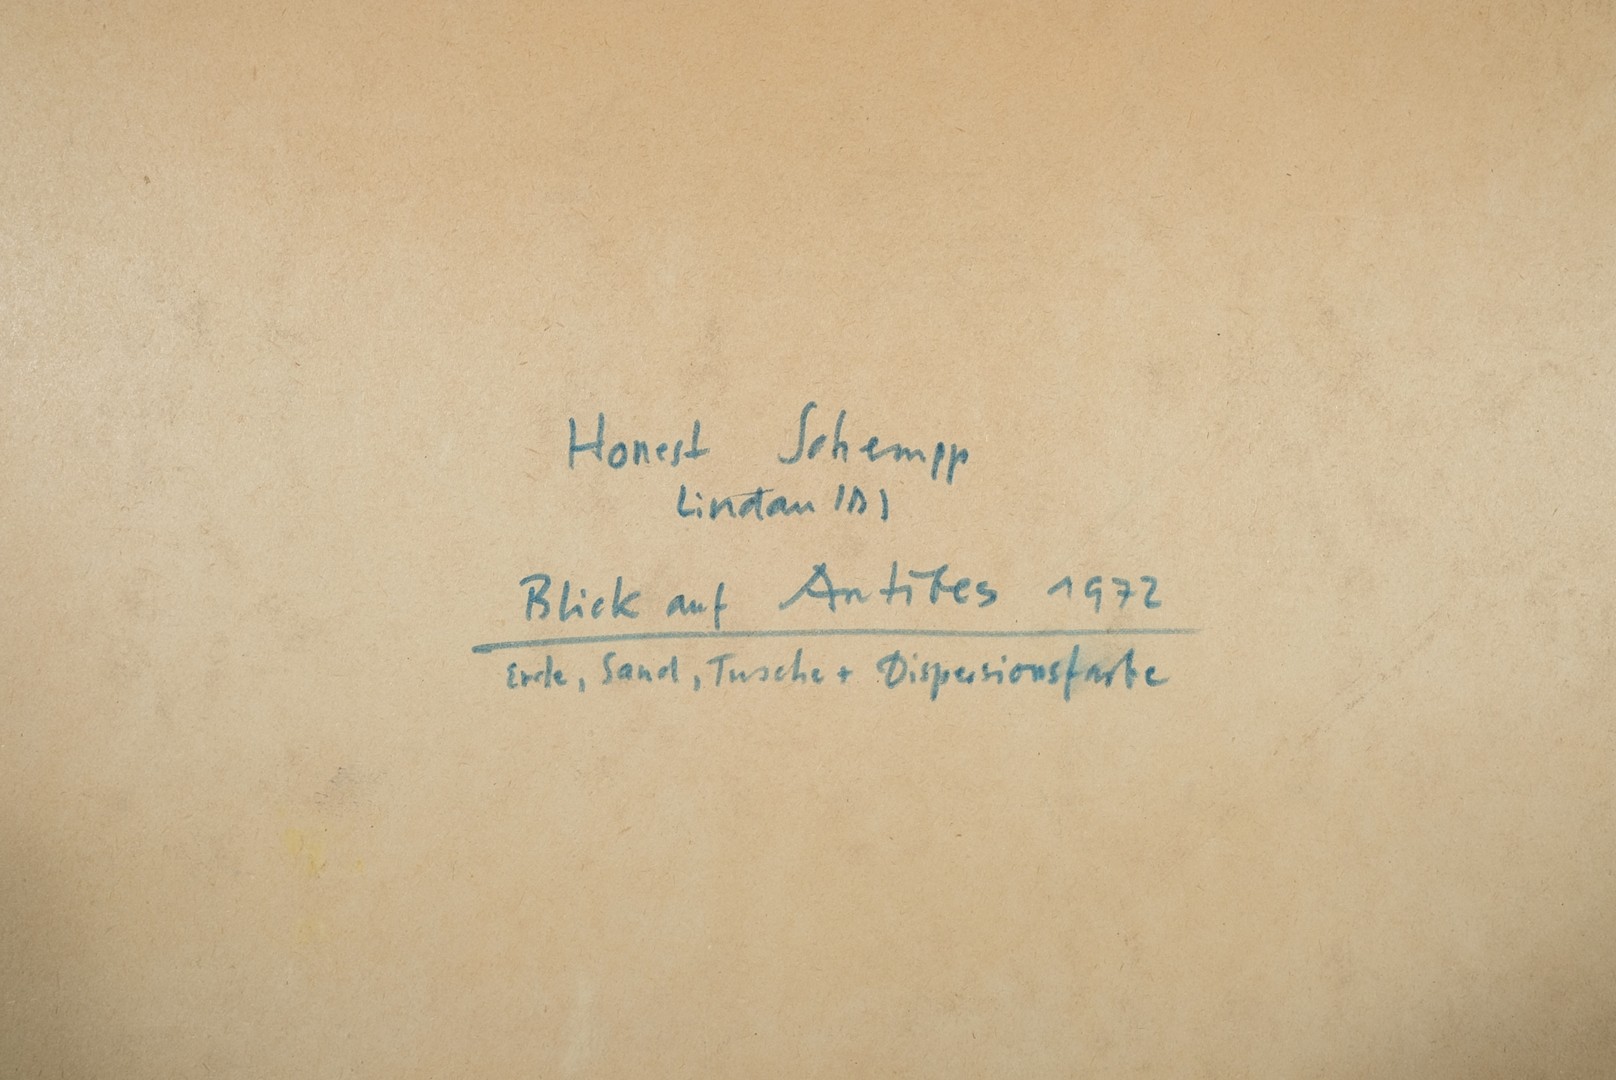 Honest Schempp
Lindau (D)
Blick auf Antibes 1972
Erde, Sand, Tusche + Dispersionsfarbe